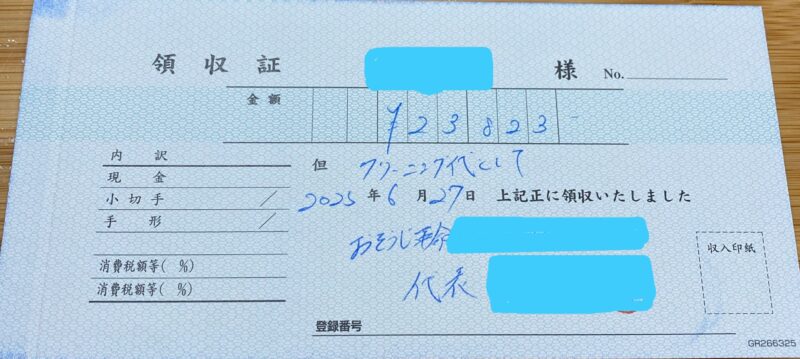 領収証 様 No.
金額 ¥23823-
内訳 但 クリーニング代として
現金
小切手 ／ 2025年6月27日 上記正に領収いたしました
手形 ／
おそうじ革命
収入印紙
消費税額等( %)
代表
消費税額等( %)
登録番号
GR266325